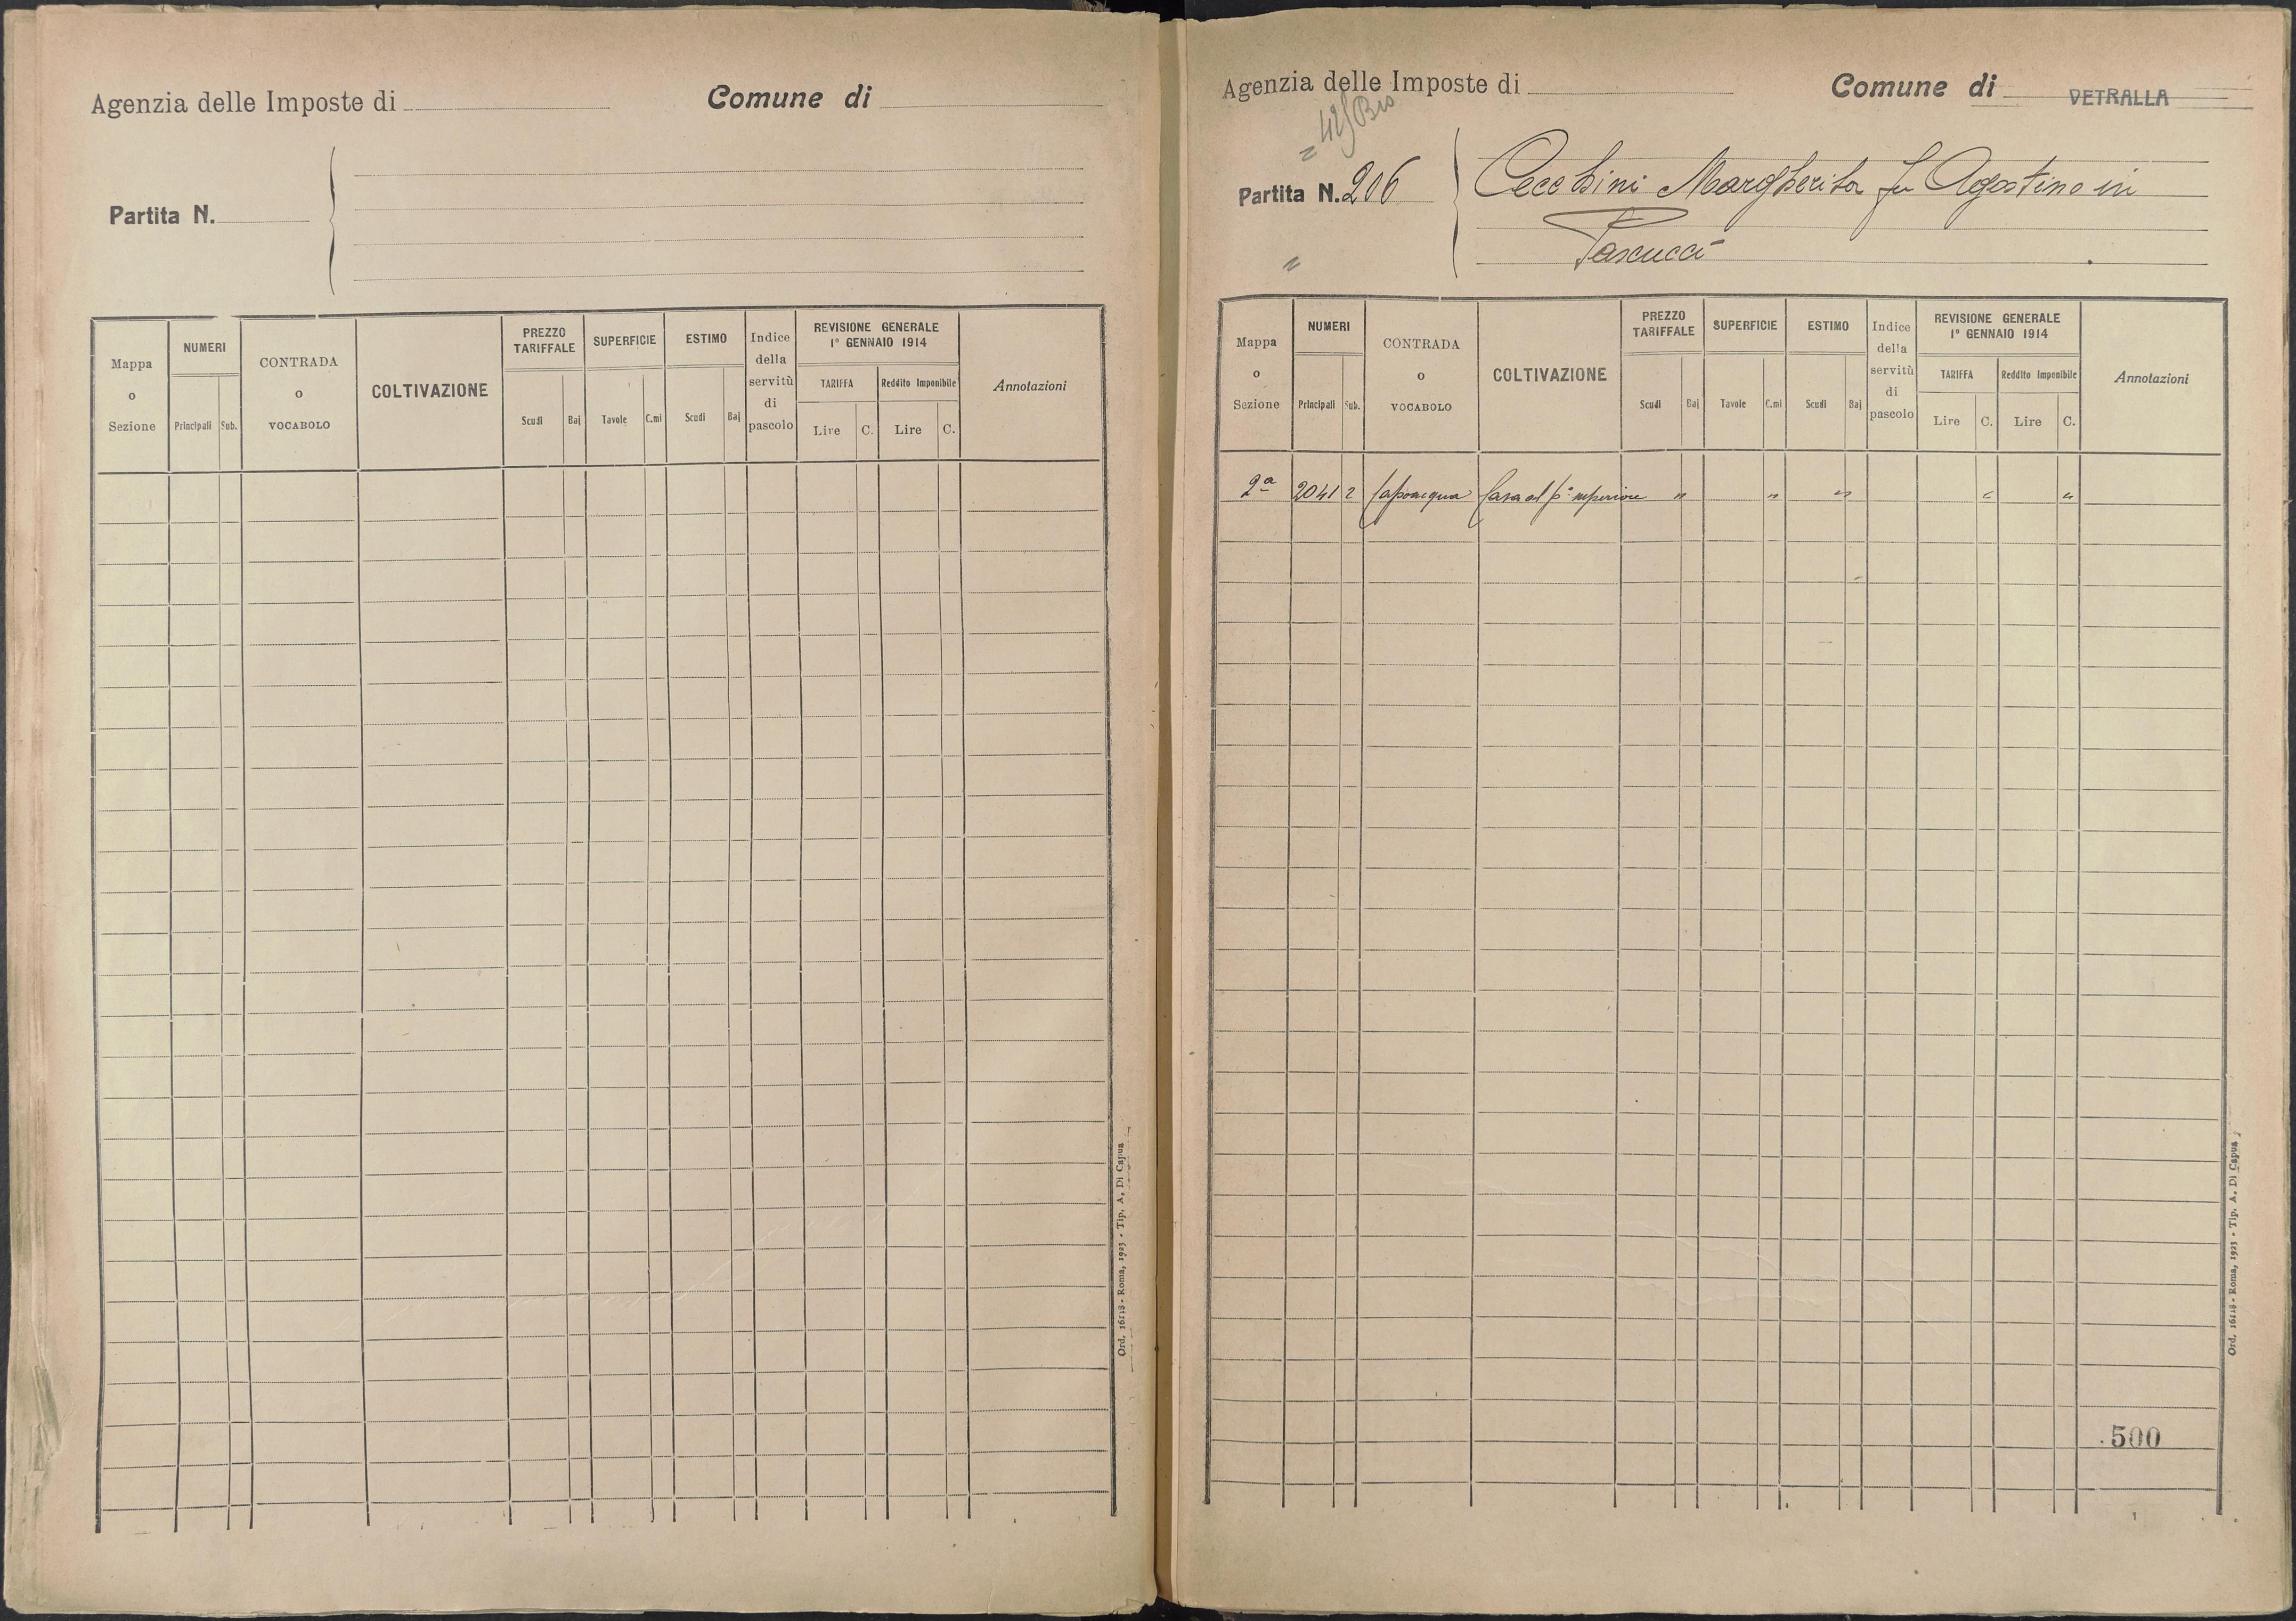 Agenzia delle Imposte di Comune di
Partita N.
Mappa o Sezione
NUMERI
Principali Sub.
CONTRADA o VOCABOLO
COLTIVAZIONE
PREZZO TARIFFALE
Scudi Baj
SUPERFICIE
Tavole C.mi
ESTIMO
Scudi Baj
Indice della servitù di pascolo
REVISIONE GENERALE
1° GENNAIO 1914
TARIFFA Reddito Imponibile
Lire C. Lire C.
Annotazioni
Ord. 16118 - Roma, 1923 - Tip. A. Di Capua
Agenzia delle Imposte di Comune di VETRALLA
Partita N. 206
Cecchini Margherita fu Agostino in
Pascucci
Mappa o Sezione
NUMERI
Principali Sub.
CONTRADA o VOCABOLO
COLTIVAZIONE
PREZZO TARIFFALE
Scudi Baj
SUPERFICIE
Tavole C.mi
ESTIMO
Scudi Baj
Indice della servitù di pascolo
REVISIONE GENERALE
1° GENNAIO 1914
TARIFFA Reddito Imponibile
Lire C. Lire C.
Annotazioni
2ª 2041 2 Capoacqua Casa al p° superiore " " " " "
500
Ord. 16118 - Roma, 1923 - Tip. A. Di Capua